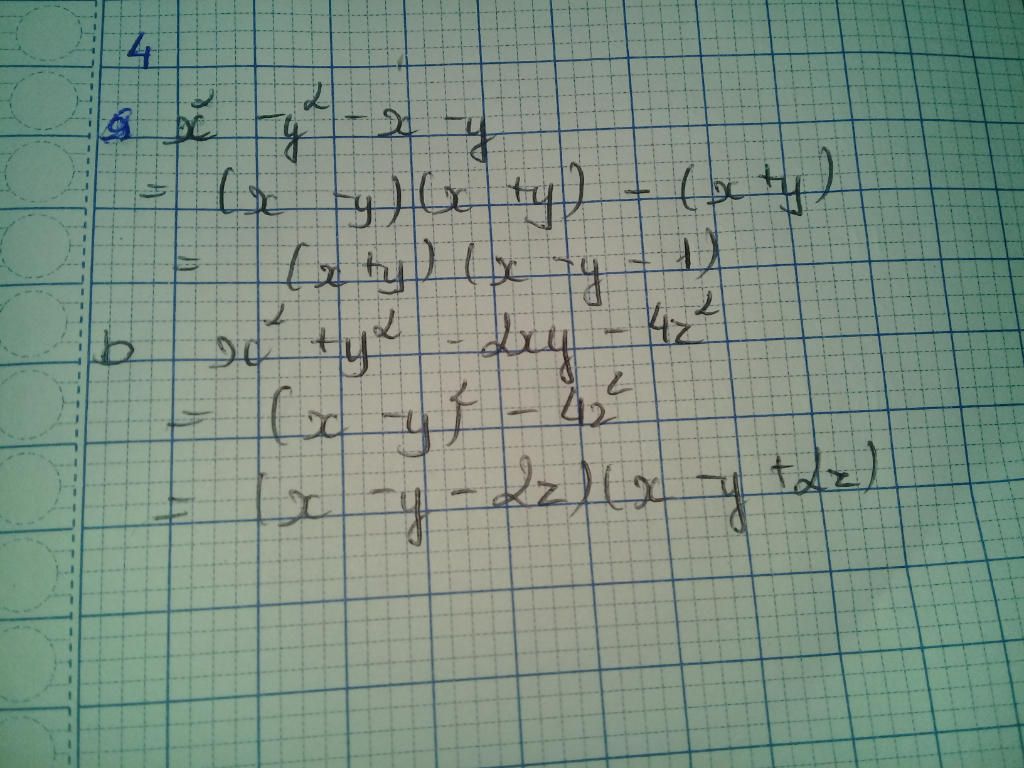 4
a x² - y² - x - y
= (x - y)(x + y) - (x + y)
= (x + y)(x - y - 1)
b x² + y² - 2xy - 4z²
= (x - y)² - 4z²
= (x - y - 2z)(x - y + 2z)